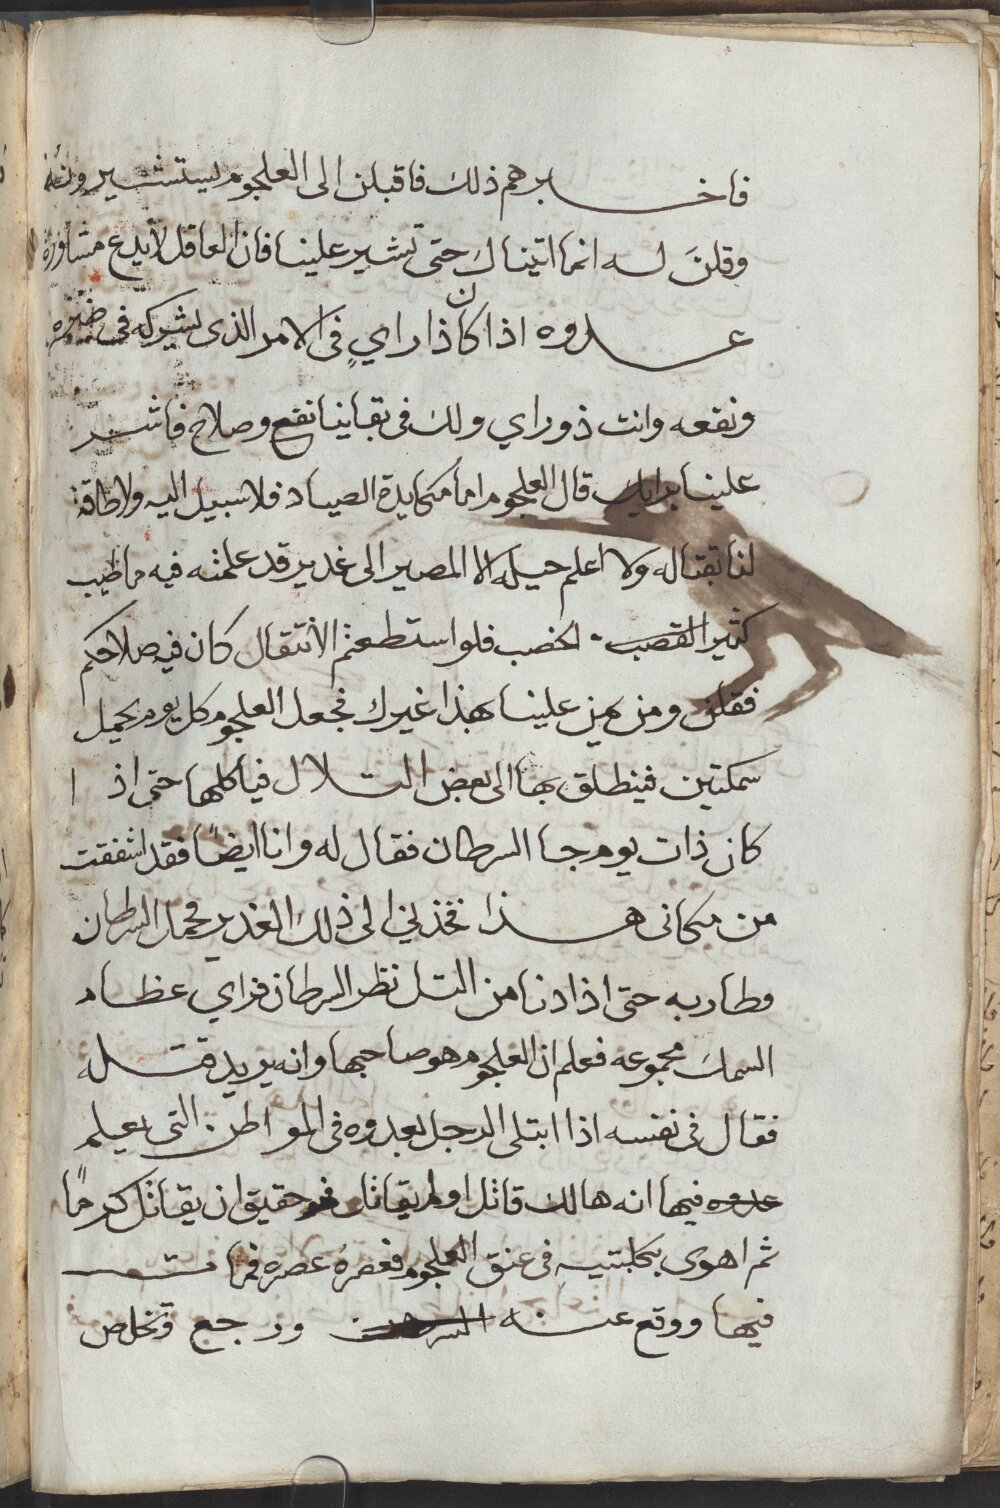 فاخبرهم ذلك فاقبلن الى العلجوم ليستشيرونه
وقلن له انما اتيناك حتى تشير علينا فان العاقل لا يدع مشاورة
عدوه اذا كان ذا راي في الامر الذي يشركه في ضره
ونفعه وانت ذو راي ولك في بقاينا نفع وصلاح فاشر
علينا برايك قال العلجوم اما مكايدة الصياد فلا سبيل اليه ولا طاقة
لنا بقتاله ولا اعلم حيله الا المصير الى غدير قد علمته فيه ما طيب
كثير القصب الخصب فلو استطعتم الانتقال كان فيه صلاحكم
فقلن ومن يمن علينا بهذا غيرك فجعل العلجوم كل يوم يحمل
سمكتين فينطلق بها الى بعض التلال فياكلها حتى اذا
كان ذات يوم جا السرطان فقال له وانا ايضًا فقد اشفقت
من مكانى هذا فخذني الى ذلك الغدير فحمل السرطان
وطار به حتى اذا دنا من التل نظر السرطان فراي عظام
السمك مجموعه فعلم ان العلجوم هو صاحبها وانه يريد قتله
فقال في نفسه اذا ابتلى الرجل بعدوه في المواطن التى يعلم
عدوه فيها انه هالك قاتل او لم يقاتل فهو حقيق ان يقاتل كرمًا
ثم اهوى بكلبتيه في عنق العلجوم فعصره عصره فمات
فيها ووقع عنه ورجع وتخلص